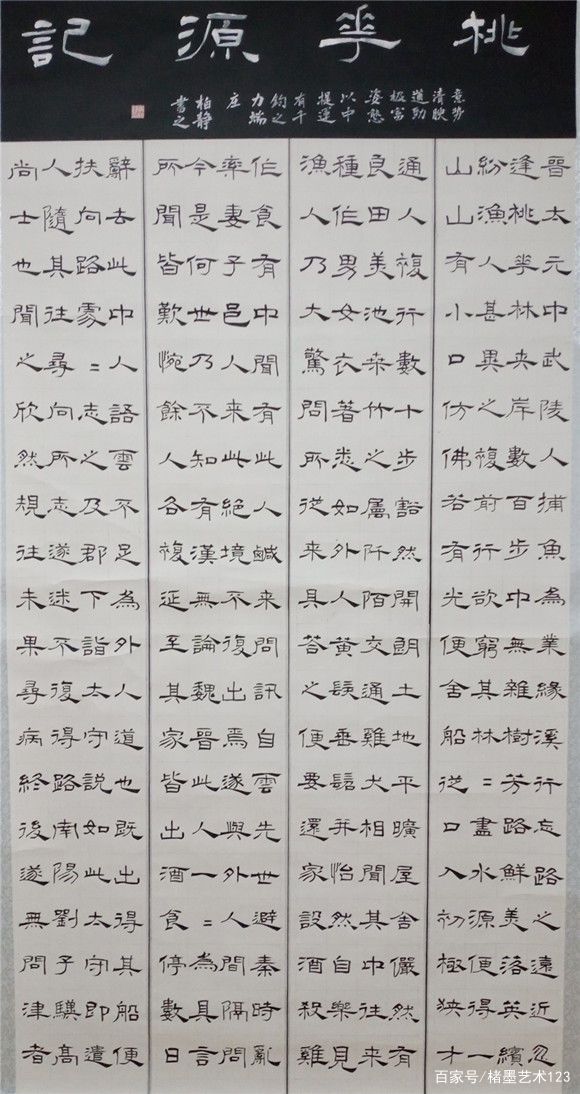 桃華源記
意步
清映
道勁
極富
姿態
以中
提運
有千
鈞之
力端
庄
柏静
書之
晉太元中武陵人捕魚為業緣溪行忘路之遠近忽
逢桃華林夾岸數百步中無雜樹芳路鮮美落英繽
紛漁人甚異之複前行欲窮其林〻盡水源便得一
山山有小口仿佛若有光便舍船從口入初極狹才
通人複行數十步豁然開朗土地平曠屋舍儼然有
良田美池桑竹之屬阡陌交通雞犬相聞其中往來
種作男女衣著悉如外人黃髮垂髫并怡然自樂見
漁人乃大驚問所從來具答之便要還家設酒殺雞
作食有中聞有此人鹹來問訊自雲先世避秦時亂
率妻子邑人來此絕境不復出焉遂與外人間隔問
今是何世乃不知有漢無論魏晉此人一〻為具言
所聞皆歎惋餘人各複延至其家皆出酒食停數日
辭去此中人語雲不足為外人道也既出得其船便
扶向路處〻志之及郡下詣太守說如此太守即遣
人隨其往尋向所志遂迷不復得路南陽劉子驥高
尚士也聞之欣然規往未果尋病終後遂無問津者
百家号/楮墨艺术123